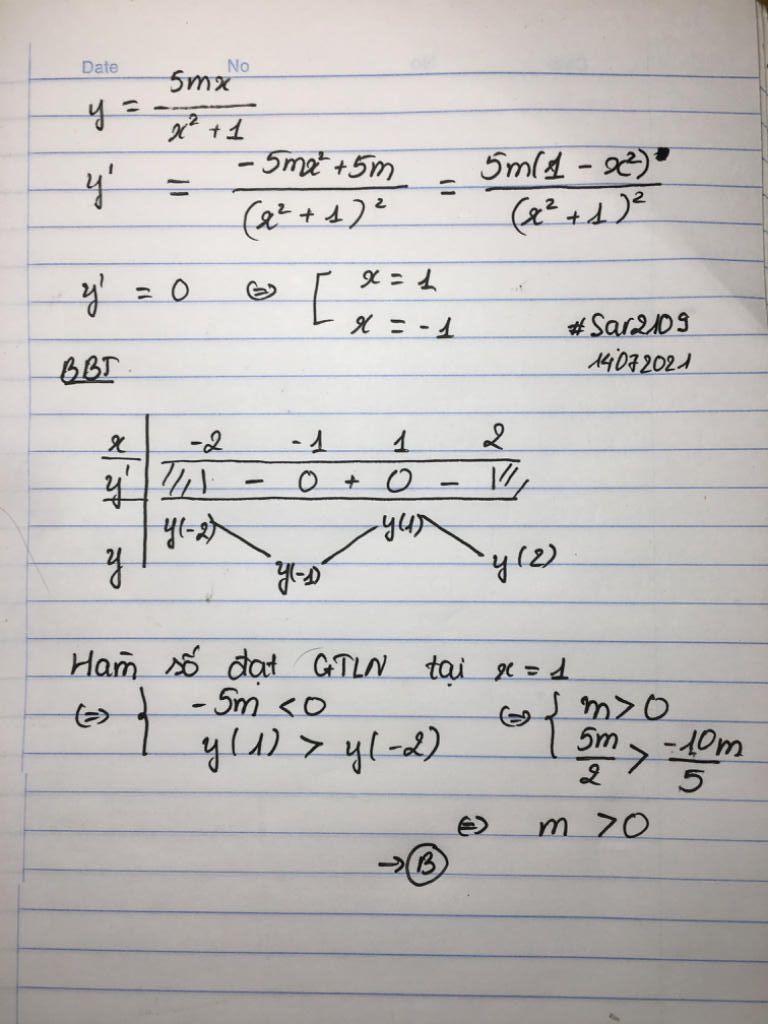 Date No
y = 5mx / (x² + 1)
y' = (-5mx² + 5m) / (x² + 1)² = 5m(1 - x²) / (x² + 1)²
y' = 0 ⇔ [ x = 1
x = -1
#Sar2109
14072021
BBT
x | -2 -1 1 2
y' | ///| - 0 + 0 - |///
y | y(-2) y(-1) y(1) y(2)
Hàm số đạt GTLN tại x = 1
⇔ { -5m < 0 ⇔ { m > 0
y(1) > y(-2) 5m/2 > -10m/5
⇔ m > 0
→ B